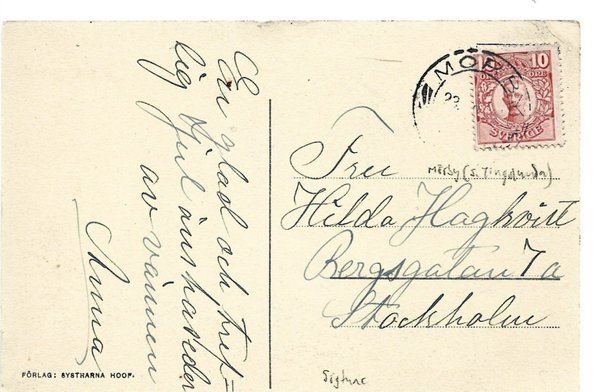 En glad och tref-
lig Jul önskas eder
av vännen
Anna
FÖRLAG: SYSTRARNA HOOF.
MÖRBY
10
ÖRE
SVERIGE
Fru
Mörby
Hilda Hagkvist
Bergsgatan 7 a
Stockholm
Sigtuna